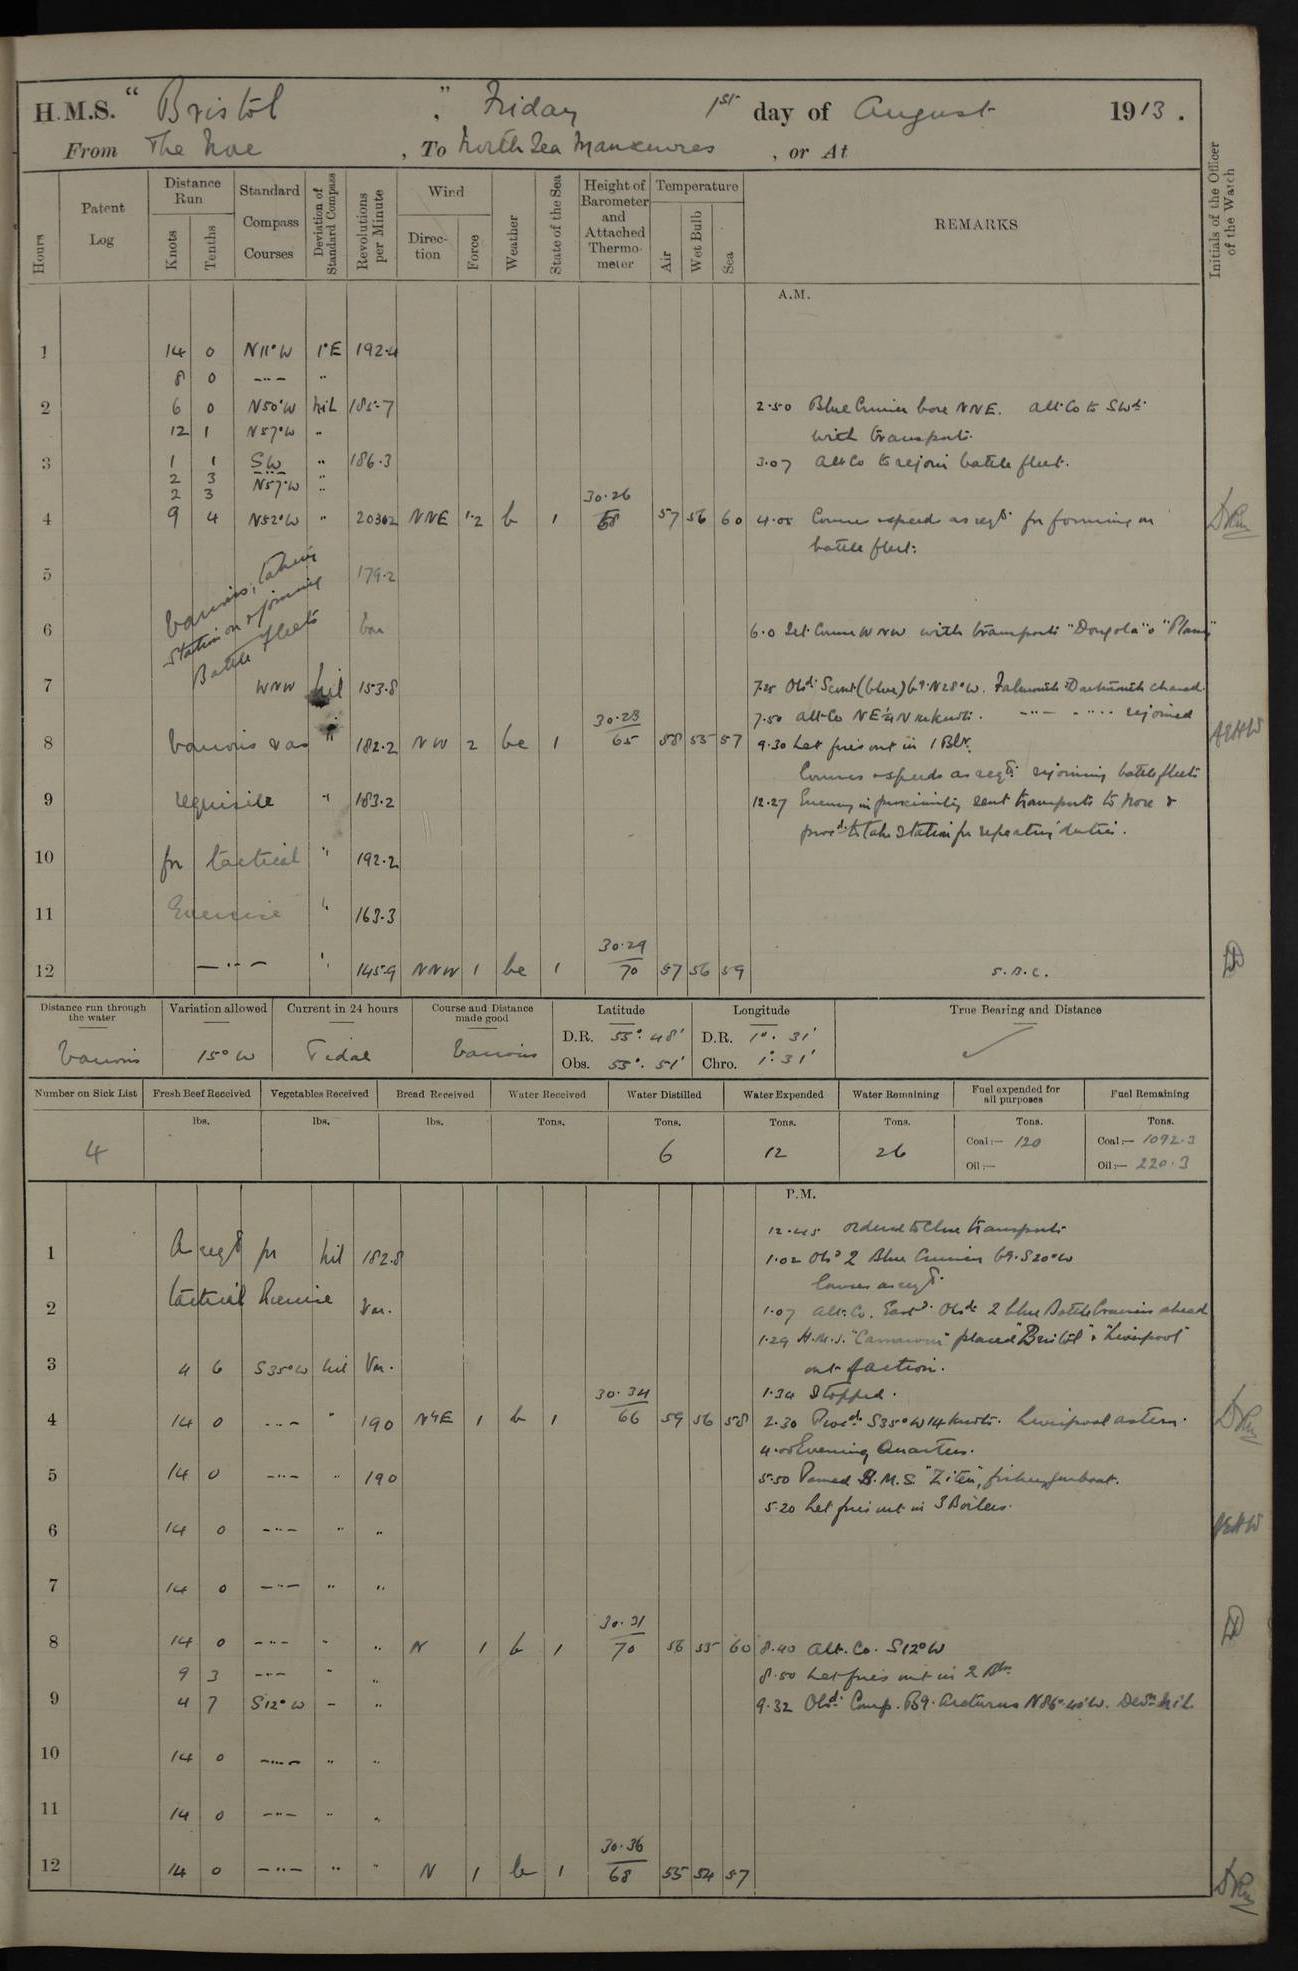 H.M.S. "Bristol", Friday 1st day of August 1913.
From The Nore, To North Sea Manoeuvres, or At
Hours
Patent Log
Distance Run
Knots
Tenths
Standard Compass Courses
Deviation of Standard Compass
Revolutions per Minute
Wind
Direction
Force
Weather
State of the Sea
Height of Barometer and Attached Thermometer
Temperature
Air
Wet Bulb
Sea
REMARKS
Initials of the Officer of the Watch
A.M.
1 14 0 N11°W 1°E 192.4
8 0 -"-
2 6 0 N50°W nil 185.7
2.50 Blue Cruiser bore NNE. Alt. Co to SWd.
12 1 N57°W "
with transports.
3 1 1 SW " 186.3
3.07 Alt Co to rejoin battle fleet.
2 3 -"- "
2 3 N57°W "
4 9 4 N52°W " NNE 1.2 b 1 30.26 68 57 56 60
4.00 Courses & speeds as reqd. for forming on
battle fleet.
5 179.2
Various, taking
station on & rejoining
Battle Fleets
6 Var
6.0 Set Course WNW with transports "Dongola" &
7 WNW nil 153.8
7.25 Obsd. Scout (blue) bg. N28°W. Falmouth & Dartmouth chased.
7.50 Alt. Co NE¼N -"- -"- rejoined
8 Various & as " 182.2 NW 2 bc 1 30.28 65 58 55 57
9.30 Let fires out in 1 Blr.
Courses & speeds as reqd. rejoining battle fleets
9 requisite " 183.2
12.27 Enemy in proximity sent transports to Nore &
procd. to take station for repeating duties.
10 for tactical " 192.2
11 Exercise " 163.3
12 -"- " 145.9 NNW 1 bc 1 30.29 70 57 56 59
Distance run through the water
Various
Variation allowed
15° W
Current in 24 hours
Tidal
Course and Distance made good
Various
Latitude
D.R. 55°. 48'
Obs. 55°. 51'
Longitude
D.R. 1°. 31'
Chro. 1°. 31'
True Bearing and Distance
Number on Sick List
4
Fresh Beef Received
lbs.
Vegetables Received
lbs.
Bread Received
lbs.
Water Received
Tons.
Water Distilled
Tons.
6
Water Expended
Tons.
12
Water Remaining
Tons.
26
Fuel expended for all purposes
Tons.
Coal:— 120
Oil:—
Fuel Remaining
Tons.
Coal:— 1092.3
Oil:— 220.3
P.M.
12.45 Ordered to close transports
1 As reqd for nil 182.8
1.02 Obsd 2 Blue Cruisers bg. S20°W
Courses as reqd.
2 tactical Exercise Var.
1.07 Alt. Co. Eastd. Obsd. 2 blue Battle Cruisers ahead
1.29 H.M.S. "Carnarvon" placed "Bristol" & "Liverpool"
3 4 6 S35°W nil Var.
out of action.
1.34 Stopped.
4 14 0 -"- " 190 N'yE 1 b 1 30.34 66 59 56 58
2.30 Procd. S35°W 14 knots. Liverpool astern.
4.00 Evening Quarters.
5 14 0 -"- " 190
5.50 Passed fishery gunboat.
5.20 Let fires out in 3 Boilers.
6 14 0 -"- " "
7 14 0 -"- " "
8 14 0 -"- " " N 1 b 1 30.31 70 56 55 60
8.40 Alt. Co. S12°W
9 3 -"- " "
8.50 Let fires out in 2 Blrs
9 4 7 S12°W - "
9.32 Obsd. Comp. Bg. Arcturus N86°.40'W. Devn. Nil
10 14 0 -"- " "
11 14 0 -"- " "
12 14 0 -"- " " N 1 b 1 30.36 68 55 54 57